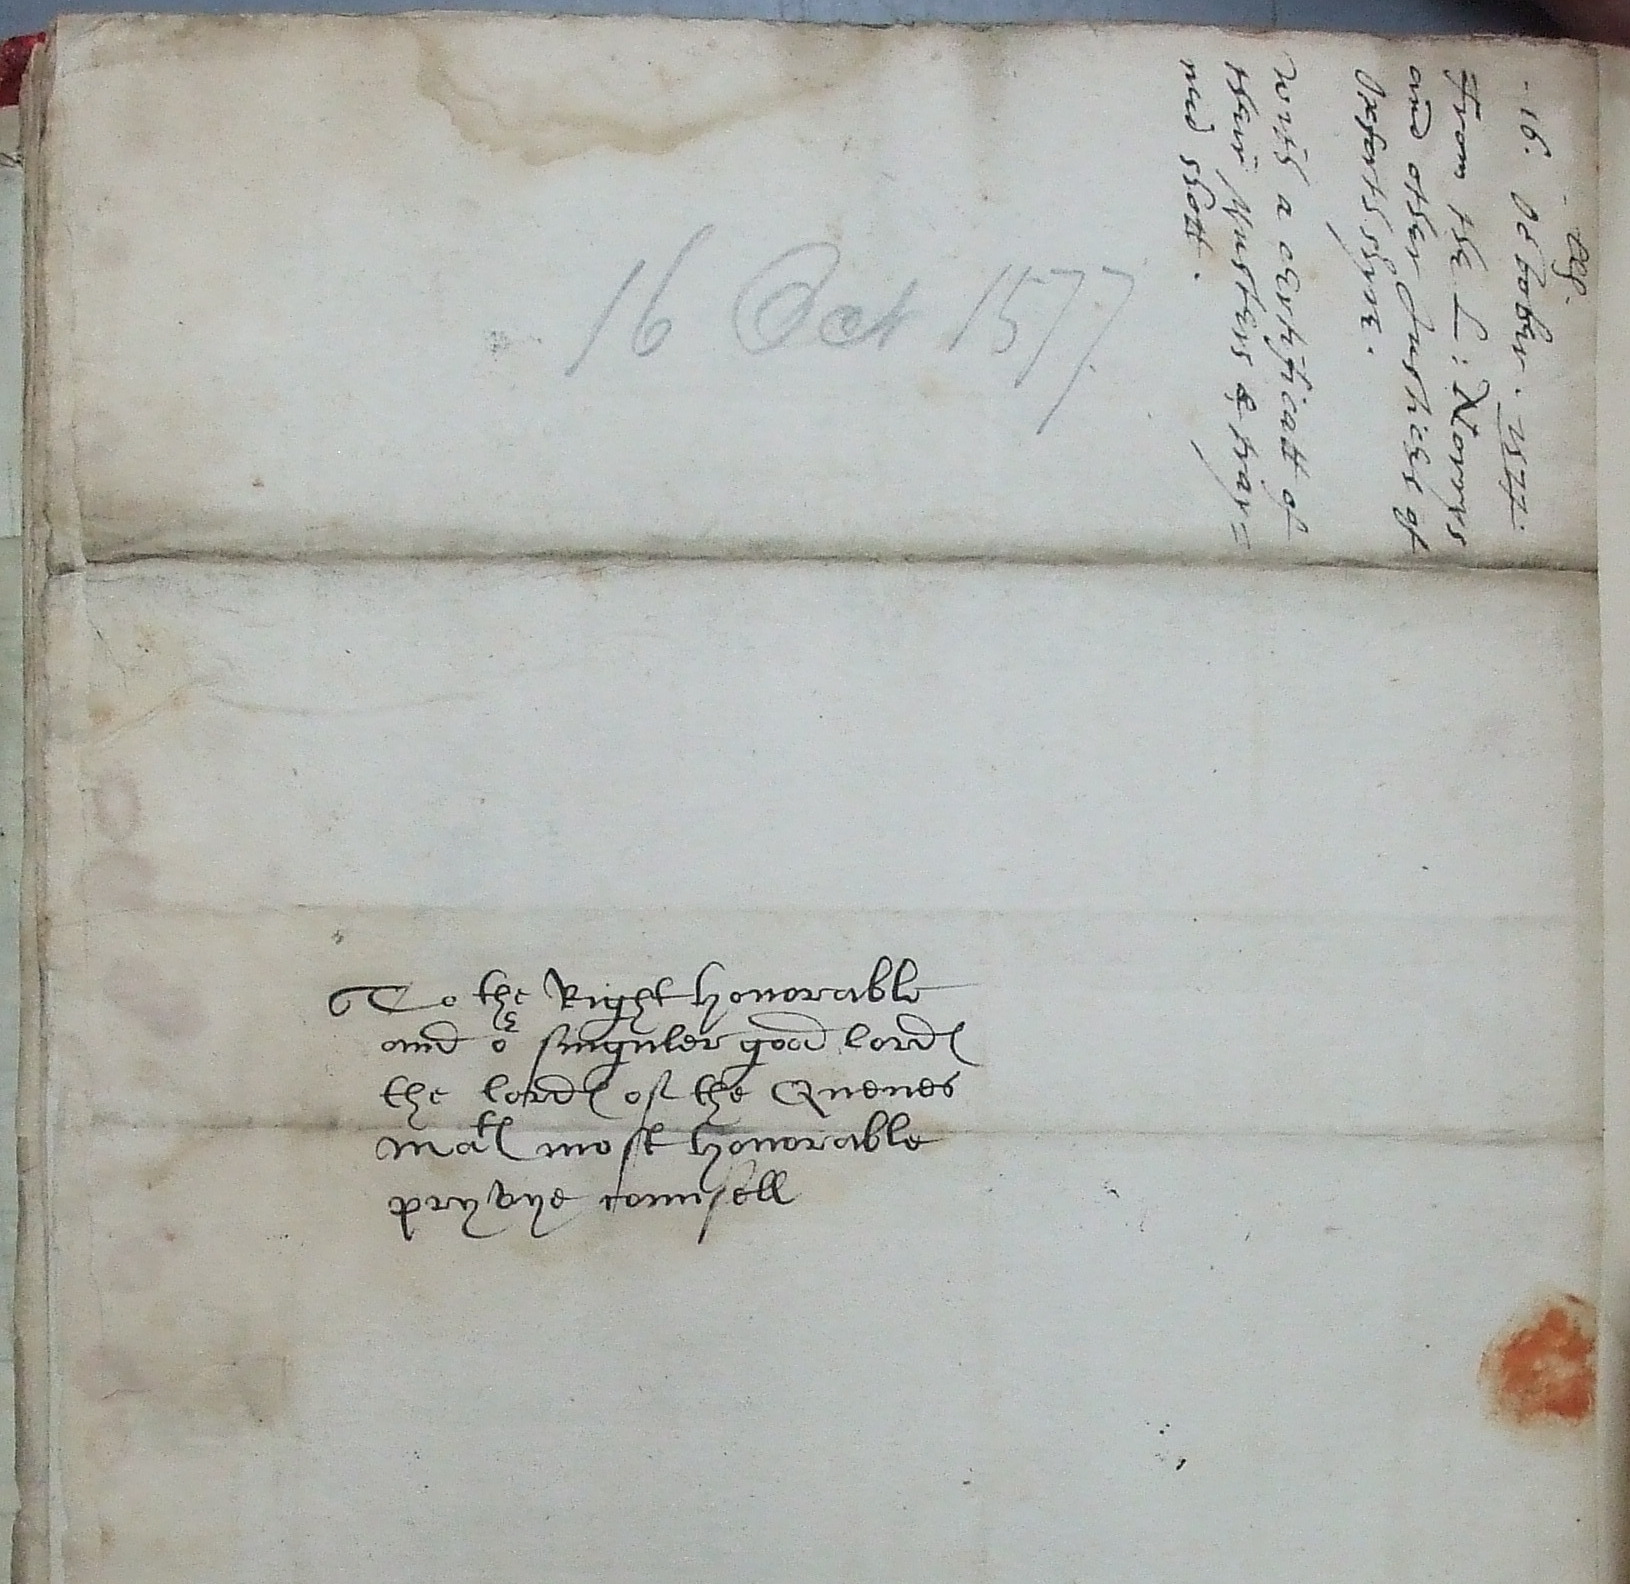 16. October. 1577.
From the L: Norrys
and other Justices of
Oxfortshyre.
with a certifficatt of
their Musters & tray=
ned shott.
16 Oct 1577
To the Right honorable
and or singuler good lordes
the lordes of the Quenes
Matꝭ most honorable
pryvye counsell